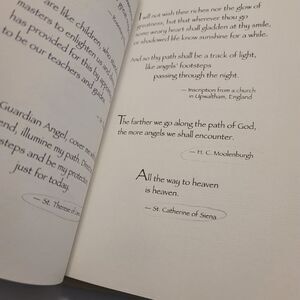 are like children, who
masters to enlighten us and
has provided for this by appoin
to be our teachers and guides.
Guardian Angel, cover me w
end, illumine my path. Direct
steps and be my protection
just for today.
— St. Thérèse of Lis
I will not wish thee riches nor the glow of
greatness, but that wherever thou go
some weary heart shall gladden at thy smile,
or shadowed life know sunshine for a while.
And so thy path shall be a track of light,
like angels' footsteps
passing through the night.
— Inscription from a church
in Upwaltham, England
The farther we go along the path of God,
the more angels we shall encounter.
— H. C. Moolenburgh
All the way to heaven
is heaven.
— St. Catherine of Siena